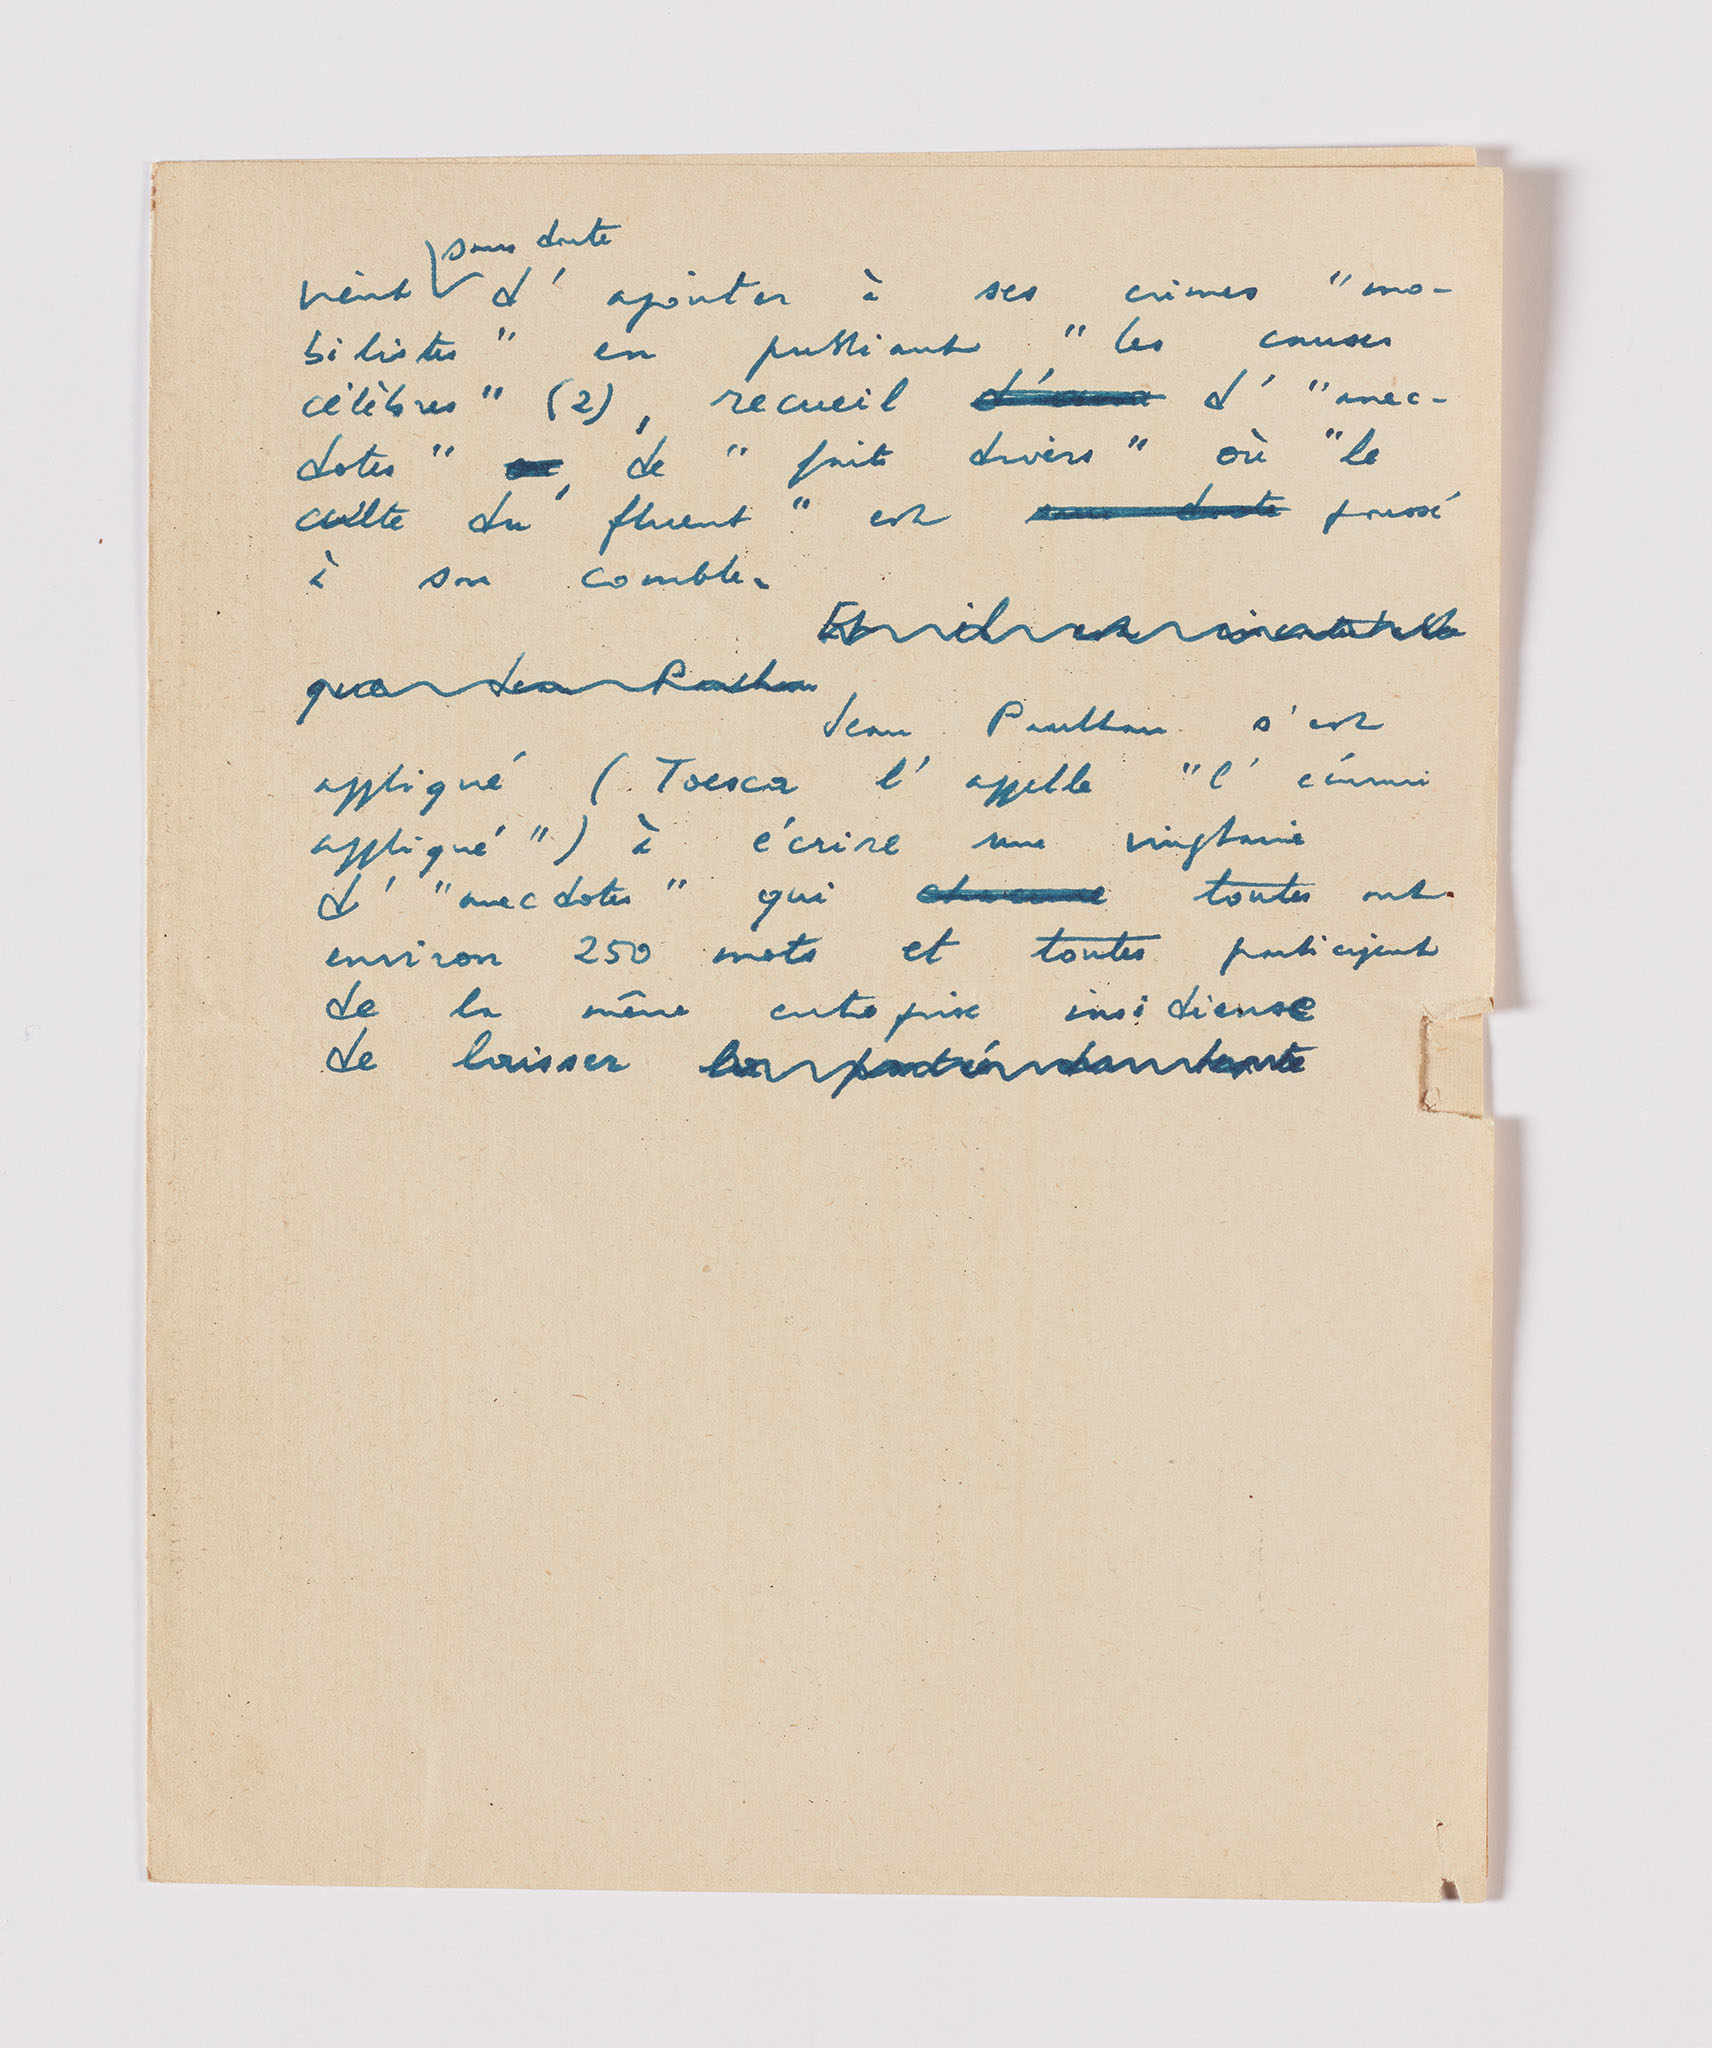 sans doute
vient d'ajouter à ses crimes "mo-
bilistes" en publiant "les causes
célèbres" (2), recueil d' "anec-
dotes", de "faits divers" où "le
culte du fluent" est sans doute poussé
à son comble.
Et il est incontestable
que Jean Paulhan
Jean Paulhan s'est
appliqué (Toesca l'appelle "l'ennui
appliqué") à écrire une vingtaine
d' "anecdotes" qui chacune toutes ont
environ 250 mots et toutes participent
de la même entreprise insidieuse
de laisser la